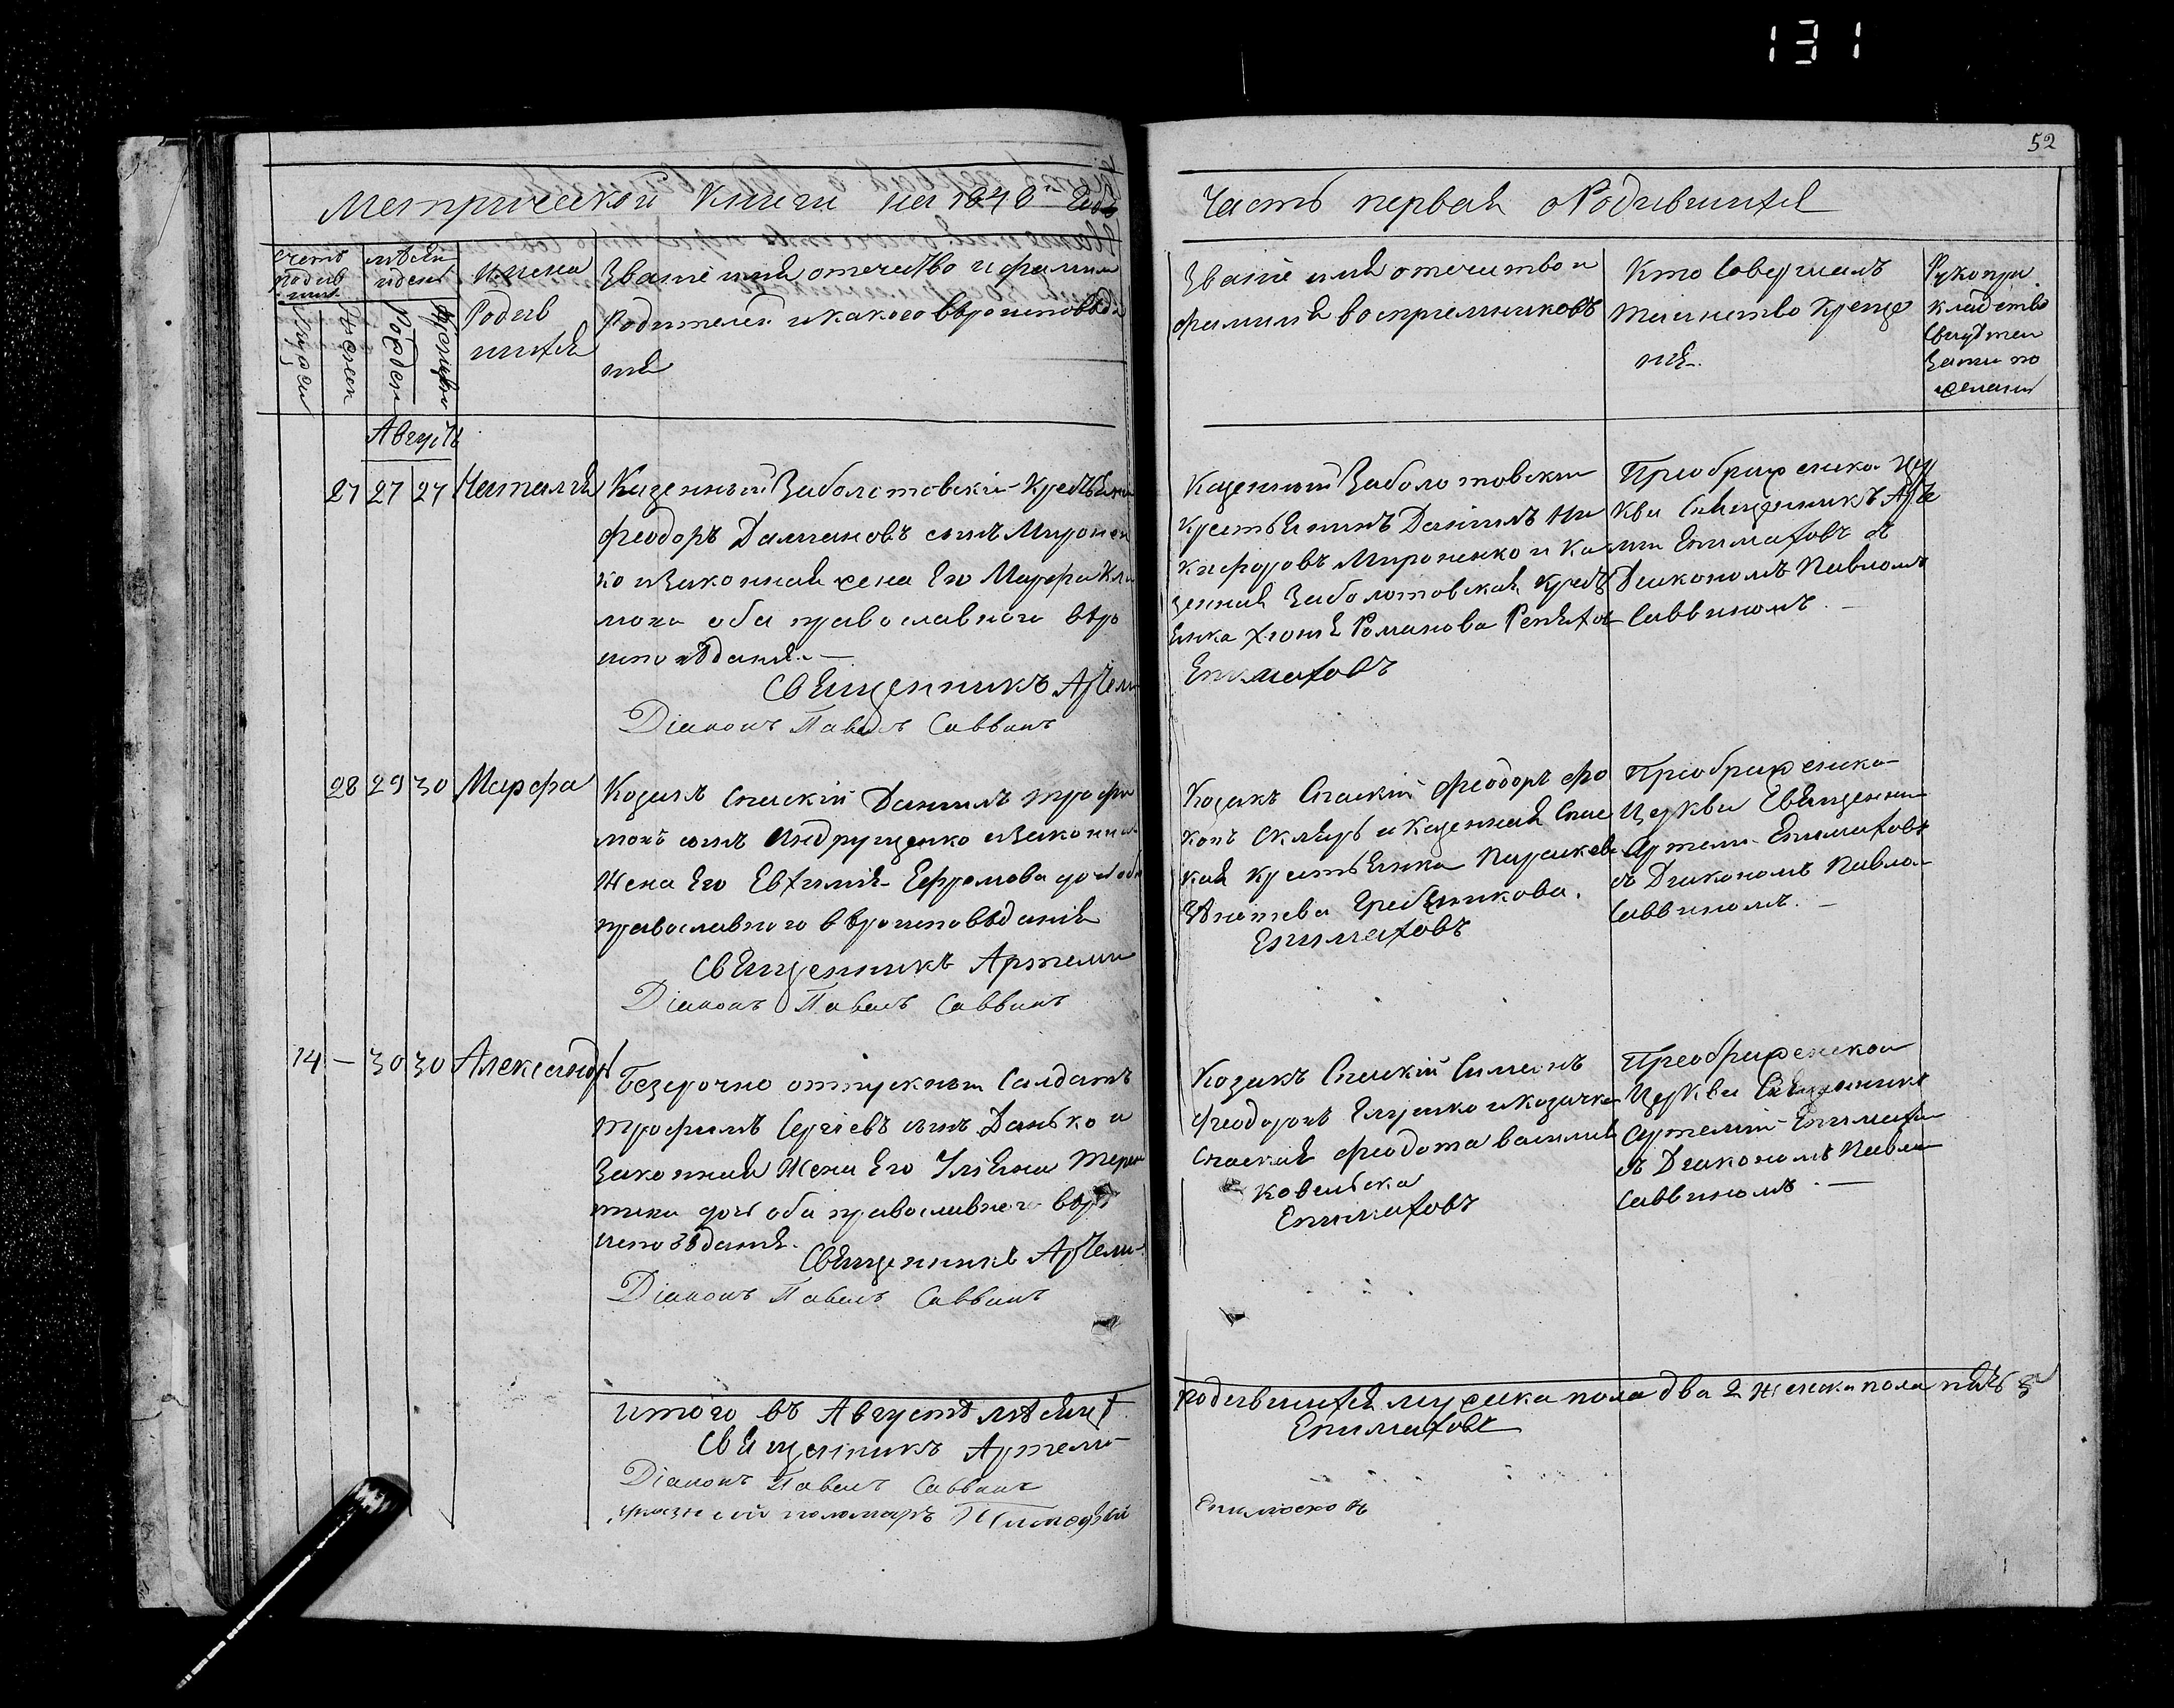 131
52
Метрической Книги на 1848й Годъ
Часть первая о Родившихся
Счетъ родив шихъ
Мужеск
Женск
мѣсяц и день
Рожден
Крещен
Имена
Родив
шихся
Званіе имя отечество и фамил
Родителей и какого вѣроисповѣда
нія
Званіе имя отечитво и
фамилія воспріемниковъ
Кто Совершалъ
таинство Креще
нія.
Рукопри
кладство
свидѣтел
Записи по
желанію
Августъ
27 27 27 Наталія
Казенный Заболотовскій Крестьянин
Феодоръ Дамиановъ сынъ Миронен
ко и Законная жена Его Марфа Кли
мова оба православнаго вѣро
исповѣданія.—
Священникъ Артеми
Діаконъ Павелъ Саввинъ
Казенный Заболотовскии
крестьянинъ Даніилъ Ни
кифоровъ Мироненко и Ка
зенная Заболотовская крест
янка Хіонія Романова
Епимаховъ
Преображенкой Цер
кви Священникъ Арте
мій Епимаховъ съ
Диакономъ Павломъ
Саввиномъ.—
28 29 30 Марфа
Козакъ Спаскій Даніилъ Трофи
мовъ сынъ Андрущенко и Законная
Жена Его Евфимія Ефремова дочь оба
православнаго вѣроисповѣданія
Священникъ Артеми
Діаконъ Павелъ Саввинъ
Козакъ Спаскій Феодоръ Фо
котъ Скляръ и Казенная Спас
кая крестьянка Параскева
Игнатева Гребенникова.
Епимаховъ
Преображенкой
Церкви Священни
Артеми Епимаховъ
съ Диакономъ Павлом
Саввиномъ.—
14 — 30 30 Александръ
Безсрочно отпускным Салдатъ
Трофимъ Сергіевъ сынъ Данько и
Законная Жена Его Ульяна Терен
тиева дочь оба православнаго вѣро
исповѣданія.
Священникъ Артеми
Діаконъ Павелъ Саввинъ
Козакъ Спаскій Симеонъ
Феодоровъ Глушко и козачка
Спаская Феодота Василие
Ковальска
Епимаховъ
Преображенкой
Церкви Священникъ
Артемій Епимахов
съ Диакономъ Павло
Саввиномъ.—
итого въ Августѣ мѣсяцѣ
родившихся мужеска пола два 2 женска пола пять 5
Священникъ Артеми
Епимаховъ
Діаконъ Павелъ Саввинъ
пономарь Тимофей
Епимаховъ